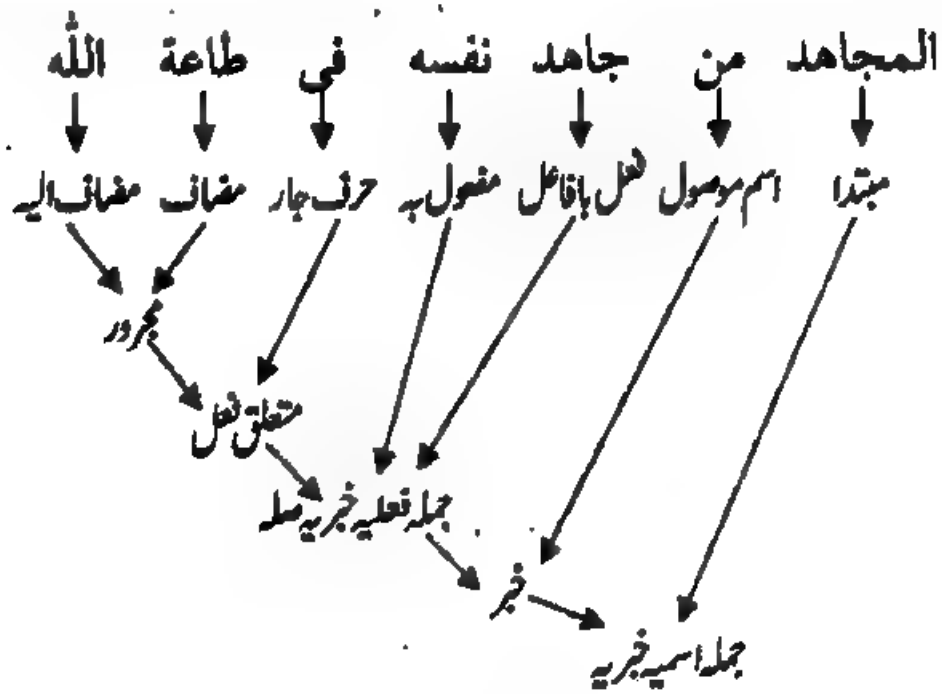 المجاهد من جاهد نفسه فی طاعة الله
مبتدا اسم موصول فعل بافاعل مفعول بہ حرف جار مضاف مضاف الیہ
مجرور
متعلق فعل
جملہ فعلیہ خبریہ صلہ
خبر
جملہ اسمیہ خبریہ